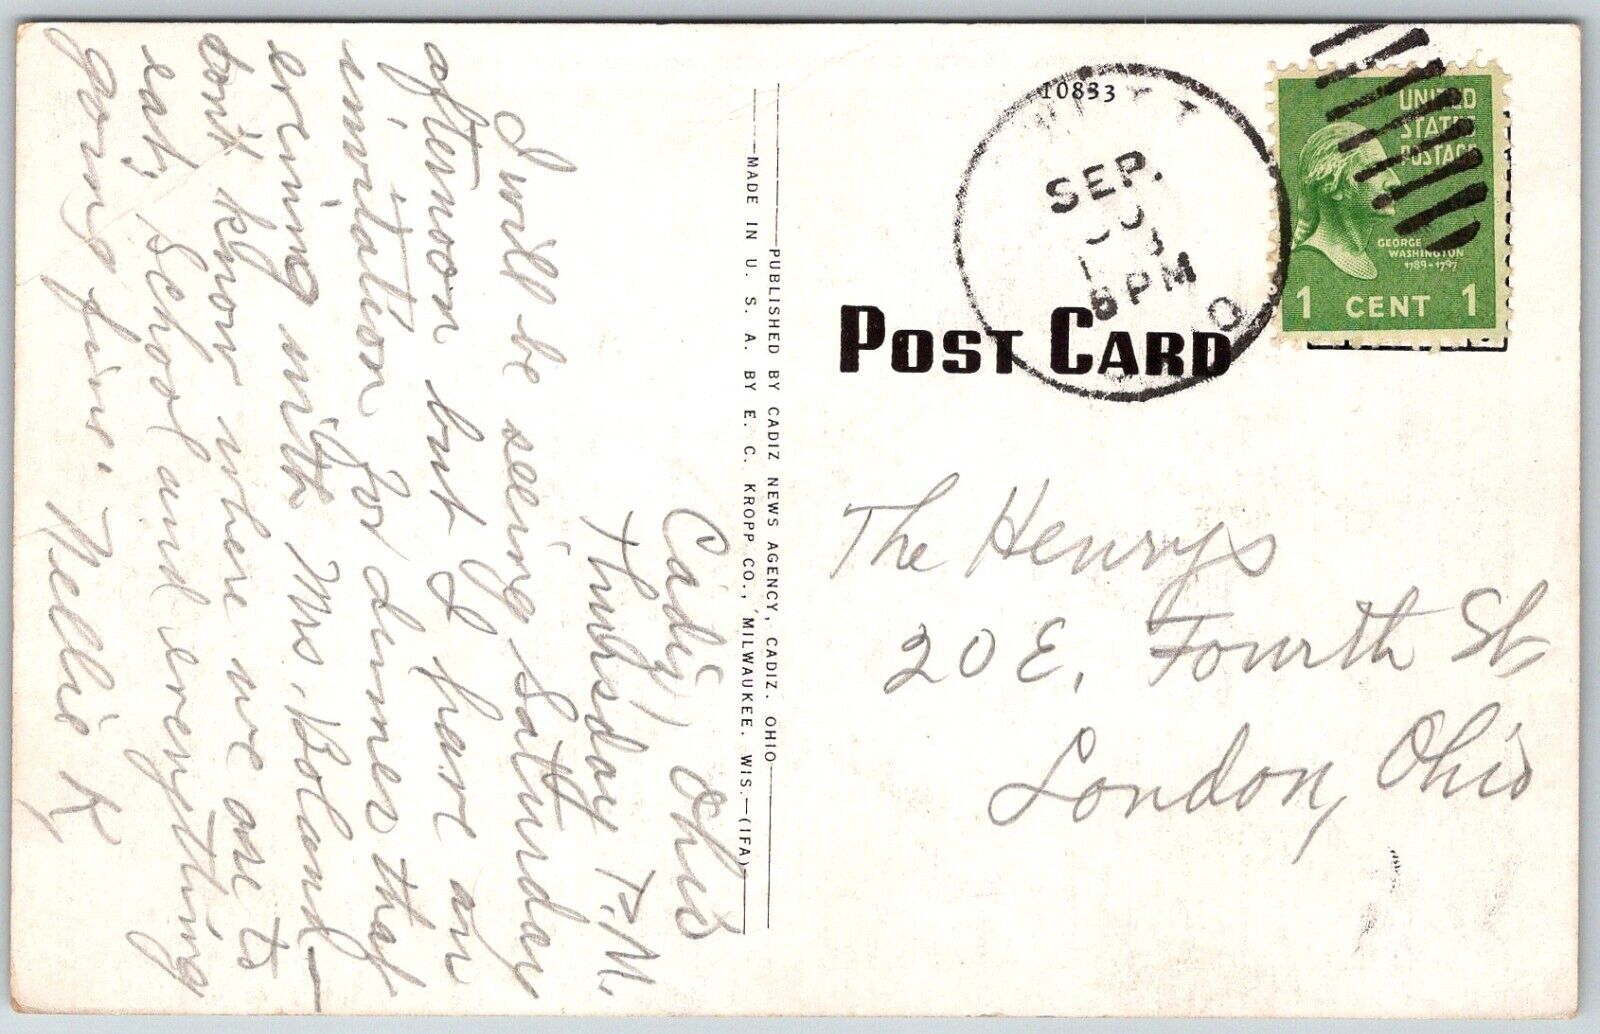 Cadiz, Ohio
Thursday P.M.
I will be seeing Saturday
afternoon but I have an
invitation for dinner that
evening with Mrs. Boland—
don't know where we are to
eat, School and everything
going fine. Nellie K
PUBLISHED BY CADIZ NEWS AGENCY, CADIZ, OHIO
MADE IN U. S. A. BY E. C. KROPP CO., MILWAUKEE, WIS.—(IFA)
10833
SEP.
8 PM
UNITED
STATES
POSTAGE
GEORGE
WASHINGTON
1789-1797
1 CENT 1
POST CARD
The Henrys
20 E. Fourth St.
London, Ohio